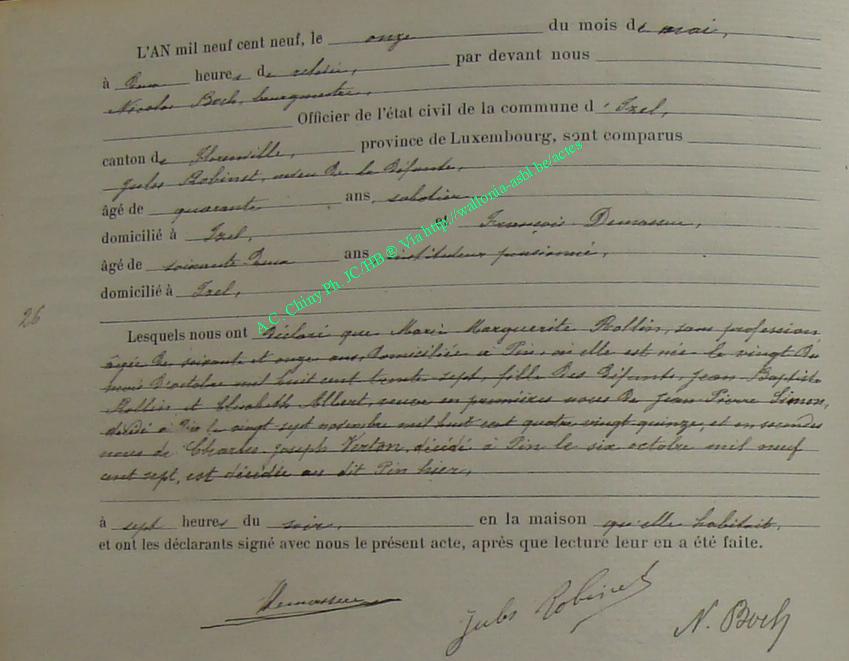 L'AN mil neuf cent neuf, le onze du mois de mai,
à Deux heures de relevée, par devant nous
Nicolas Boch, bourgmestre,
Officier de l'état civil de la commune d'Izel,
canton de Florenville, province de Luxembourg, sont comparus
Jules Robinet, neveu De la Défunte,
âgé de quarante ans, sabotier,
domicilié à Izel, et François Demasseur,
âgé de soixante Deux ans instituteur pensionné,
domicilié à Izel,
26
Lesquels nous ont Déclaré que Marie Marguerite Rollin, sans profession,
âgée De soixante et onze ans, Domiciliée à Pin, où elle est née le vingt Du
mois D'octobre mil huit cent trente sept, fille Des Défunts, Jean Baptiste
Rollin, et Elisabeth Albert, veuve en premières noces De Jean Pierre Simon,
décédé à Pin le vingt sept novembre mil huit cent quatre vingt quinze, et en secondes
noces de Charles Joseph Verlon, décédé à Pin le six octobre mil neuf
cent sept, est décédée au dit Pin hier,
à sept heures du soir, en la maison qu'elle habitait,
et ont les déclarants signé avec nous le présent acte, après que lecture leur en a été faite.
Jules Robinet
N. Boch
A.C. Chiny Ph. JC/HB ® Via http://wallonia-asbl.be/actes